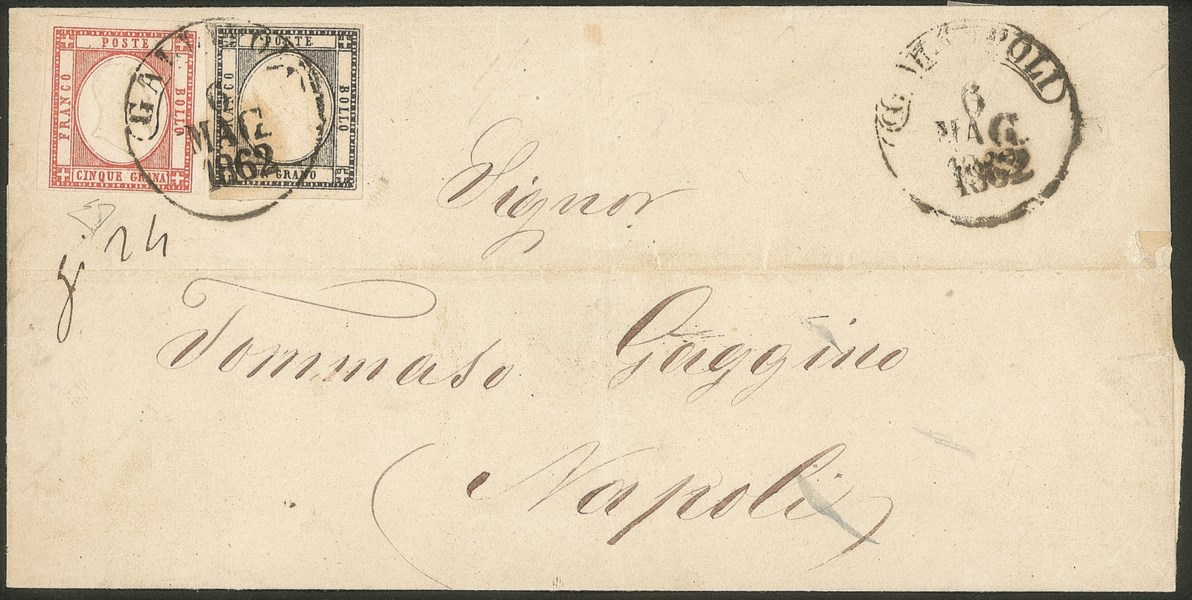 POSTE
FRANCO BOLLO
CINQUE GRANA
POSTE
BOLLO
GRANO
6
MAG.
1862
6
MAG.
1862
24
Signor
Tommaso Gaggino
Napoli